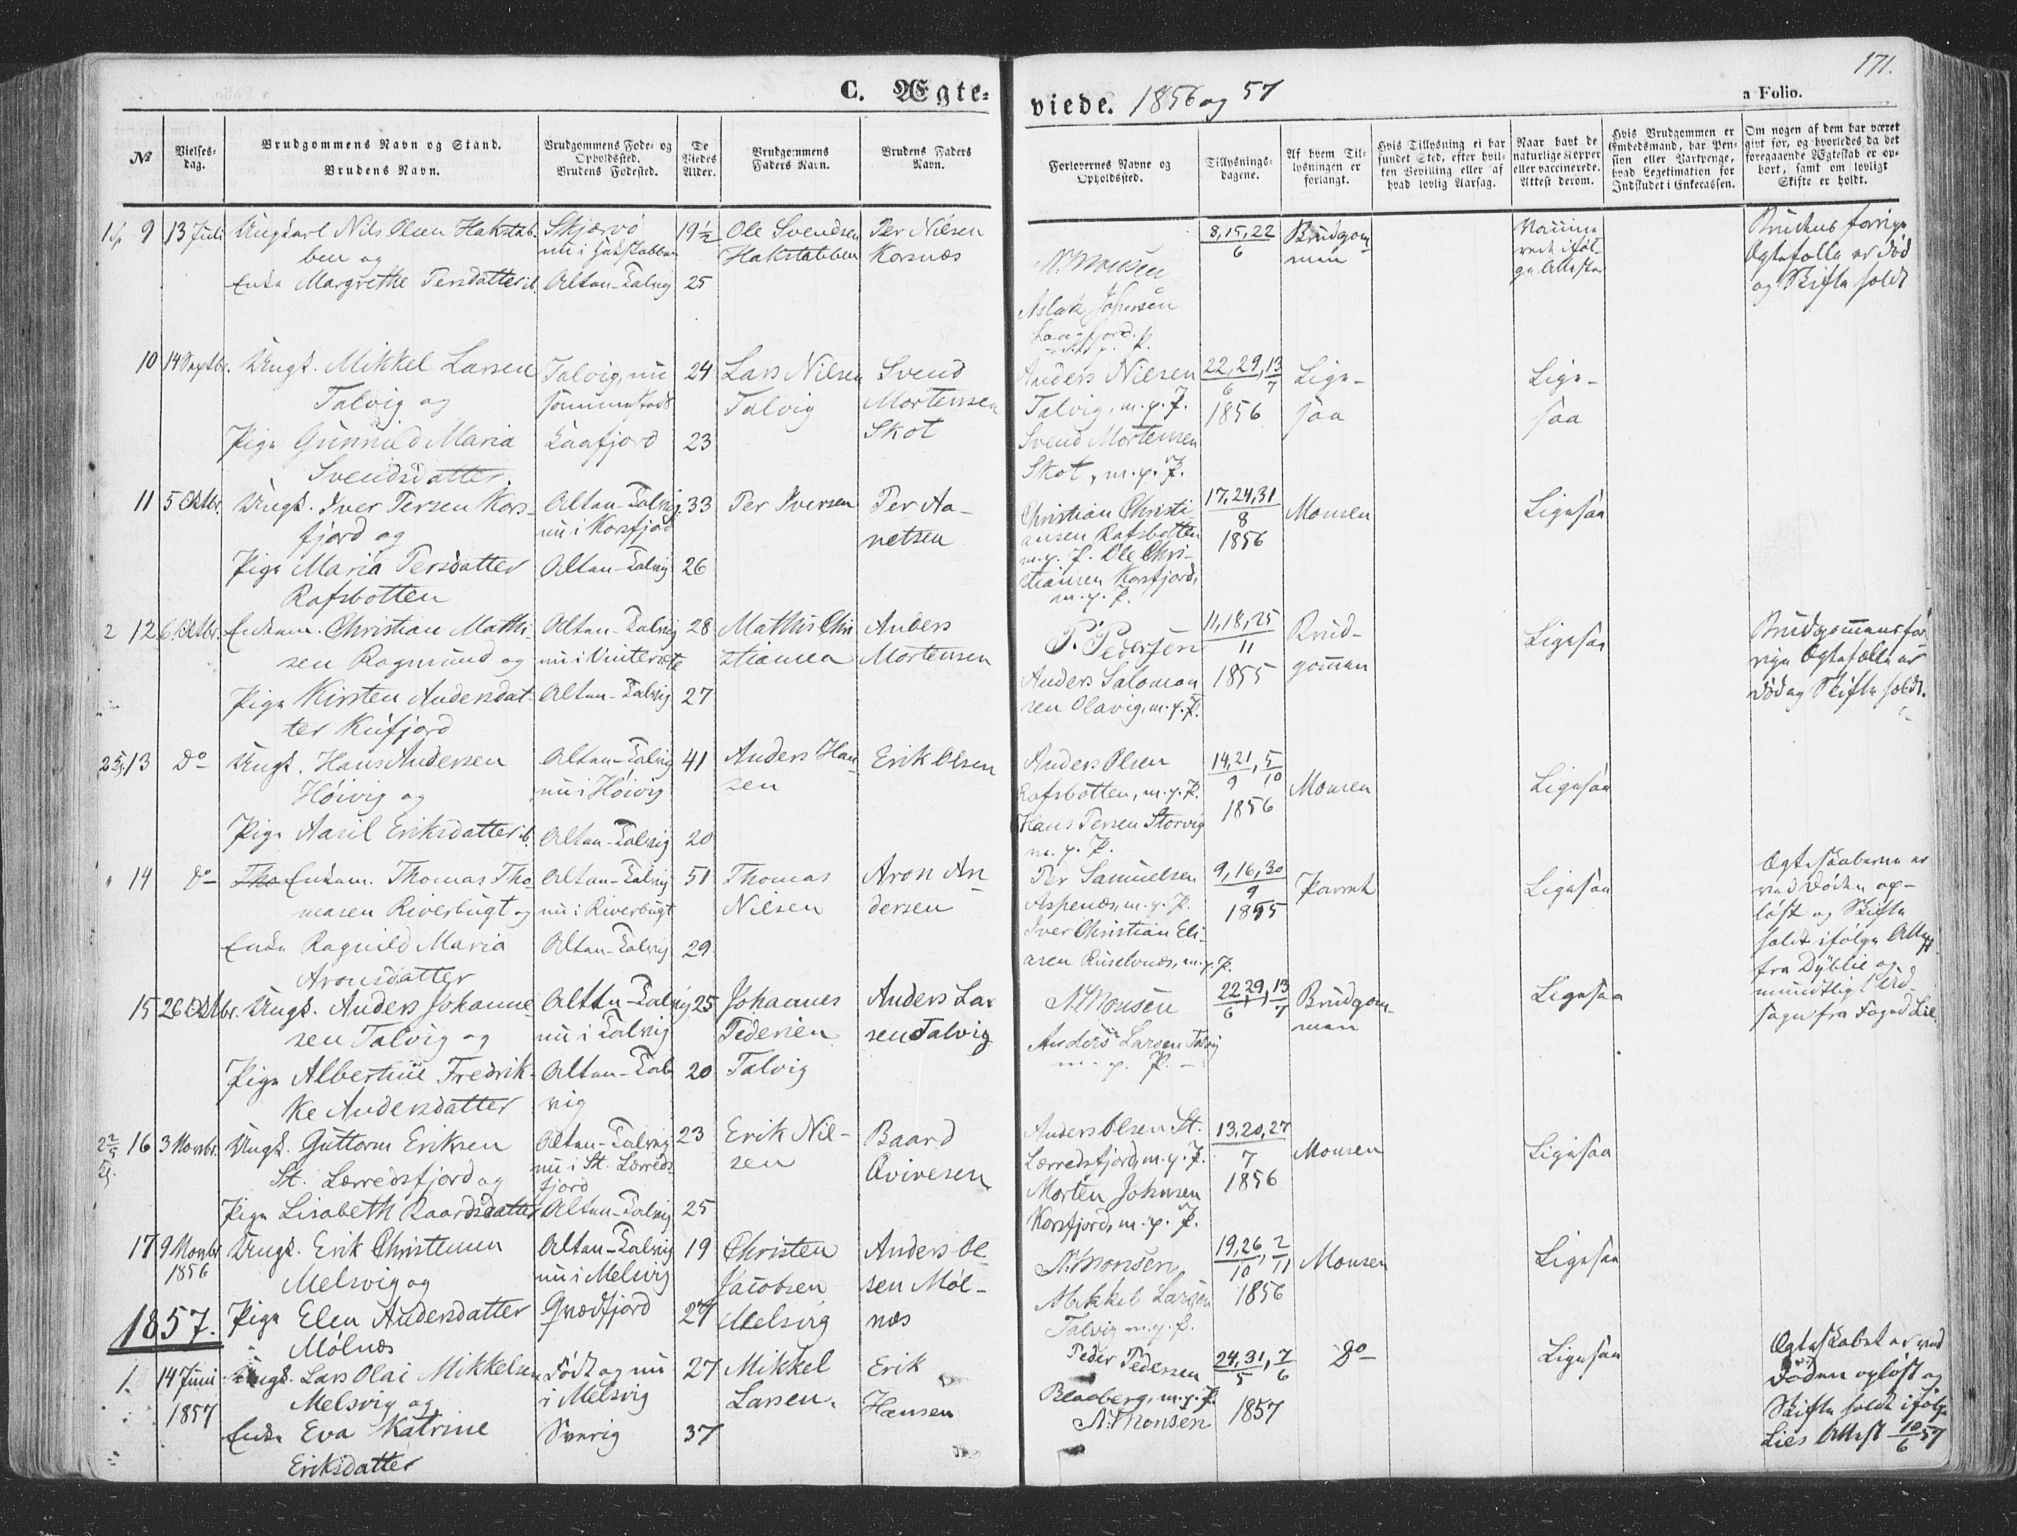 171.
C. Ægte-
viede. 1856 og 57
a Folio.
№
Vielses-
dag.
Brudgommens Navn og Stand.
Brudens Navn.
Brudgommens Føde- og
Opholdssted.
Brudens Fødested.
De
Viedes
Alder.
Brudgommens
Faders Navn.
Brudens Faders
Navn.
Forlovernes Navne og
Opholdssted.
Tillysnings-
dagene.
Af hvem Til-
lysningen er
forlangt.
Hvis Tillysning ei har
fundet Sted, efter hvil-
ken Bevilling eller af
hvad lovlig Aarsag.
Naar havt de
naturlige Kopper
eller vaccinerede.
Attest derom.
Hvis Brudgommen er
Embedsmand, har Pen-
sion eller Vartpenge,
hvad Legitimation for
Indskudet i Enkecassen.
Om nogen af dem har været
gift før, og hvorledes da det
foregaaende Ægteskab er op-
hørt, samt om lovligt
Skifte er holdt.
9 13 Juli Ungkarl Nils Olsen Hakstab-
ben og
Enke Margrethe Persdatter ib.
Skjærvø
nu i Hakstabben
Alten-Talvig
19½
25
Ole Svendsen
Hakstabben
Per Nilsen
Korsnæs
N. Monsen
Aslak Jospersen
Langfjord
8, 15, 22
6
Brudgom-
men
Vaccine-
rede iføl-
ge Attester
Brudens forrige
Ægtefælle er død
og Skifte holdt
10 14 Septbr. Ungk. Mikkel Larsen
Talvig og
Pige Gunnild Maria
Svendsdatter.
Talvig, nu
sammesteds
Kaafjord
24
23
Lars Nilsen
Talvig
Svend
Mortensen
Skot
Anders Nilsen
Talvig, m. p. P.
Svend Mortensen
Skot, m. p. P.
22, 29, 13
6 7
1856
Lige-
saa
Lige-
saa
11 5 Oktbr. Ungk. Iver Persen Kors-
fjord og
Pige Maria Persdatter
Rafsbotten
Alten-Talvig
nu i Korsfjord
Alten-Talvig
33
26
Per Iversen
Per Aa-
netsen
Christian Christi
ansen Rafsbotten
m. p. P. Ole Chri-
stiansen Korsfjord,
m. p. P.
17, 24, 31
8
1856
Monsen
Ligesaa
2 12 6 Oktbr. Enkem. Christian Mathi-
sen Rogmund og
Pige Kirsten Andersdat-
ter Kufjord
Alten-Talvig
nu i Vintersæte
Alten-Talvig
28
27
Mathis Chri
stiansen
Anders
Mortensen
P. Pedersen
Anders Salomon
sen Olavig, m. p. P.
11, 18, 25
11
1855
Brud-
gommen
Ligesaa
Brudgommens for-
rige Ægtefælle er
død og Skifte holdt.
13 Do Ungk. Hans Andersen
Høivig og
Pige Aasil Eriksdatter ib.
Alten-Talvig
nu i Høivig
Alten-Talvig
41
20
Anders Han-
sen
Erik Olsen
Anders Olsen
Rafsbotten, m. p. P.
Hans Persen Storvig
m. p. P.
14, 21, 5
9 10
1856
Monsen
Ligesaa
14 Do Enkem. Thomas Tho
masen Riverbugt og
Enke Ragnild Maria
Aronsdatter
Alten-Talvig
nu i Riverbugt
Alten-Talvig
51
29
Thomas
Nilsen
Aron An
dersen
Per Samuelsen
Aspenæs, m. p. P.
Iver Christian Eli-
asen Ruselvnæs, m. p. P.
9, 16, 30
9
1855
Parret
Ligesaa
Ægteskaberne er
ved Døden op-
løst og Skifte
holdt ifølge Attest
fra Dyblie og
mundtlig Ud-
sagn fra Foged Lie.
15 26 Oktbr. Ungk. Anders Johanne-
sen Talvig og
Pige Albertine Fredrik-
ke Andersdatter
Alten-Talvig
nu i Talvig
Alten-Tal-
vig
25
20
Johannes
Pedersen
Talvig
Anders Lar
sen Talvig
N. Monsen
Anders Larsen Talvig
m. p. P.
22, 29, 13
6 7
Brudgom-
men
Ligesaa
16 3 Novbr. Ungk. Guttorm Eriksen
St. Lærredsfjord og
Pige Lisabeth Baardsdatter
Alten-Talvig
nu i St. Lærreds
fjord
Alten-Talvig
23
25
Erik Nil-
sen
Baard
Qvivesen
Anders Olsen St.
Lærredsfjord, m. p. P.
Morten Johnsen
Korsfjord, m. p. P.
13, 20, 27
7
1856
Monsen
Ligesaa
17 9 Novbr.
1856
Ungk. Erik Christensen
Melsvig og
Pige Elen Andersdatter
Mølnæs
Alten-Talvig
nu i Melsvig
Qvædfjord
19
Christen
Jacobsen
Melsvig
Anders Ol
sen Møl-
næs
N. Monsen
Mikkel Larsen
Talvig m. p. P.
19, 26, 2
10 11
1856
Monsen
Ligesaa
1857.
1. 14 Juni
1857
Ungk. Lars Olai Mikkelsen
Melsvig og
Enke Eva Katrine
Eriksdatter
Født og nu
i Melsvig
Sverig
27
37
Mikkel
Larsen.
Erik
Hansen
Peder Pedersen
Bladberg, m. p. P.
N. Monsen
24, 31, 7
5 6
1857
Do
Ligesaa
Ægteskabet er ved
Døden opløst og
Skifte holdt ifølge
Lies Attest 10/6 57